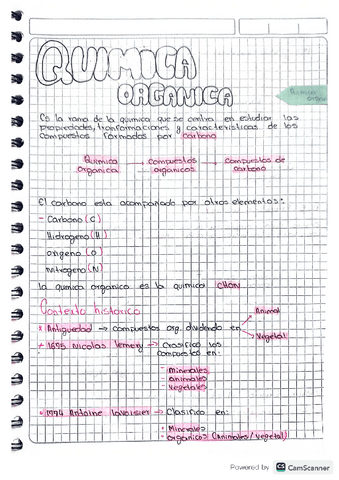 QUIMICA
ORGANICA
Es la rama de la quimica que se centra en estudiar las
propiedades, tranformaciones y caracteristicas de los
compuestos formados por carbono
Quimica organica → compuestos organicos → compuestos de carbono
El carbono esta acompañado por otros elementos:
- Carbono (C)
Hidrogeno (H)
oxigeno (O)
nitrogeno (N)
la quimica organica es la quimica CHON
Contexto historico
* Antiguedad → compuestos org. dividendo en
Animal
Vegetal
* 1675 Nicolas lemery → Clasifico los
compuestos en:
- Minerales
- animales
- vegetales
* 1774 Antoine lavoisier → Clasifico en:
* Minerales
- organicos (animales / vegetal)
Powered by CS CamScanner